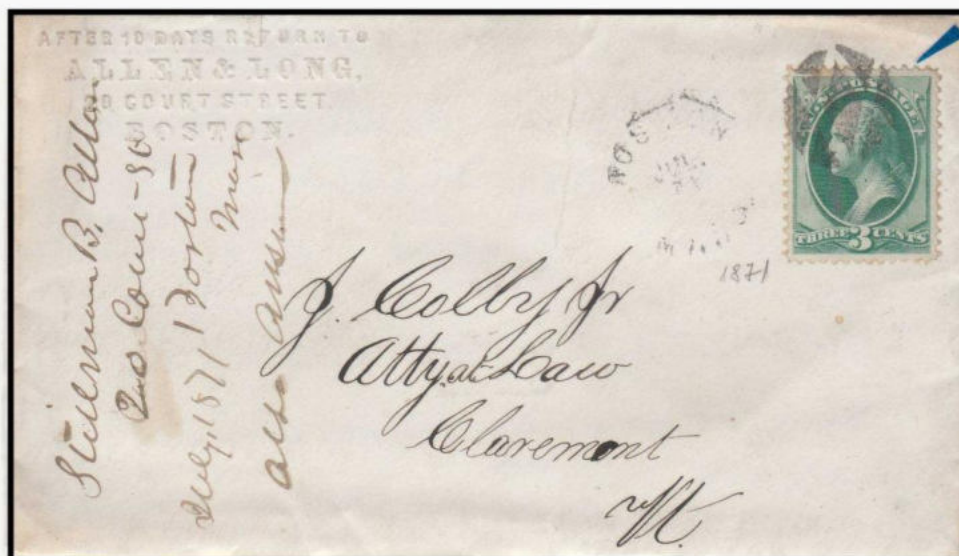 AFTER 10 DAYS RETURN TO
ALLEN & LONG,
20 COURT STREET.
BOSTON.
Stillman B. Allen
20 Court St
July, 1871 Boston
Mass
BOSTON
MASS
1871
U.S. POSTAGE
THREE 3 CENTS
J. Colby Jr
Atty. at Law
Claremont